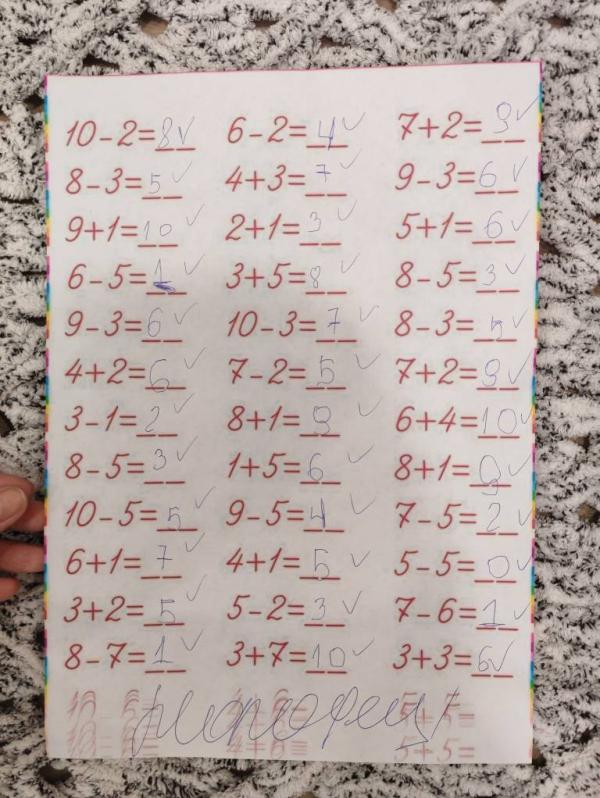 10-2=8✓ 6-2=4✓ 7+2=9✓
8-3=5✓ 4+3=7✓ 9-3=6✓
9+1=10✓ 2+1=3✓ 5+1=6✓
6-5=1✓ 3+5=8✓ 8-5=3✓
9-3=6✓ 10-3=7✓ 8-3=5✓
4+2=6✓ 7-2=5✓ 7+2=9✓
3-1=2✓ 8+1=9✓ 6+4=10✓
8-5=3✓ 1+5=6✓ 8+1=9✓
10-5=5✓ 9-5=4✓ 7-5=2✓
6+1=7✓ 4+1=5✓ 5-5=0✓
3+2=5✓ 5-2=3✓ 7-6=1✓
8-7=1✓ 3+7=10✓ 3+3=6✓
Молодец!